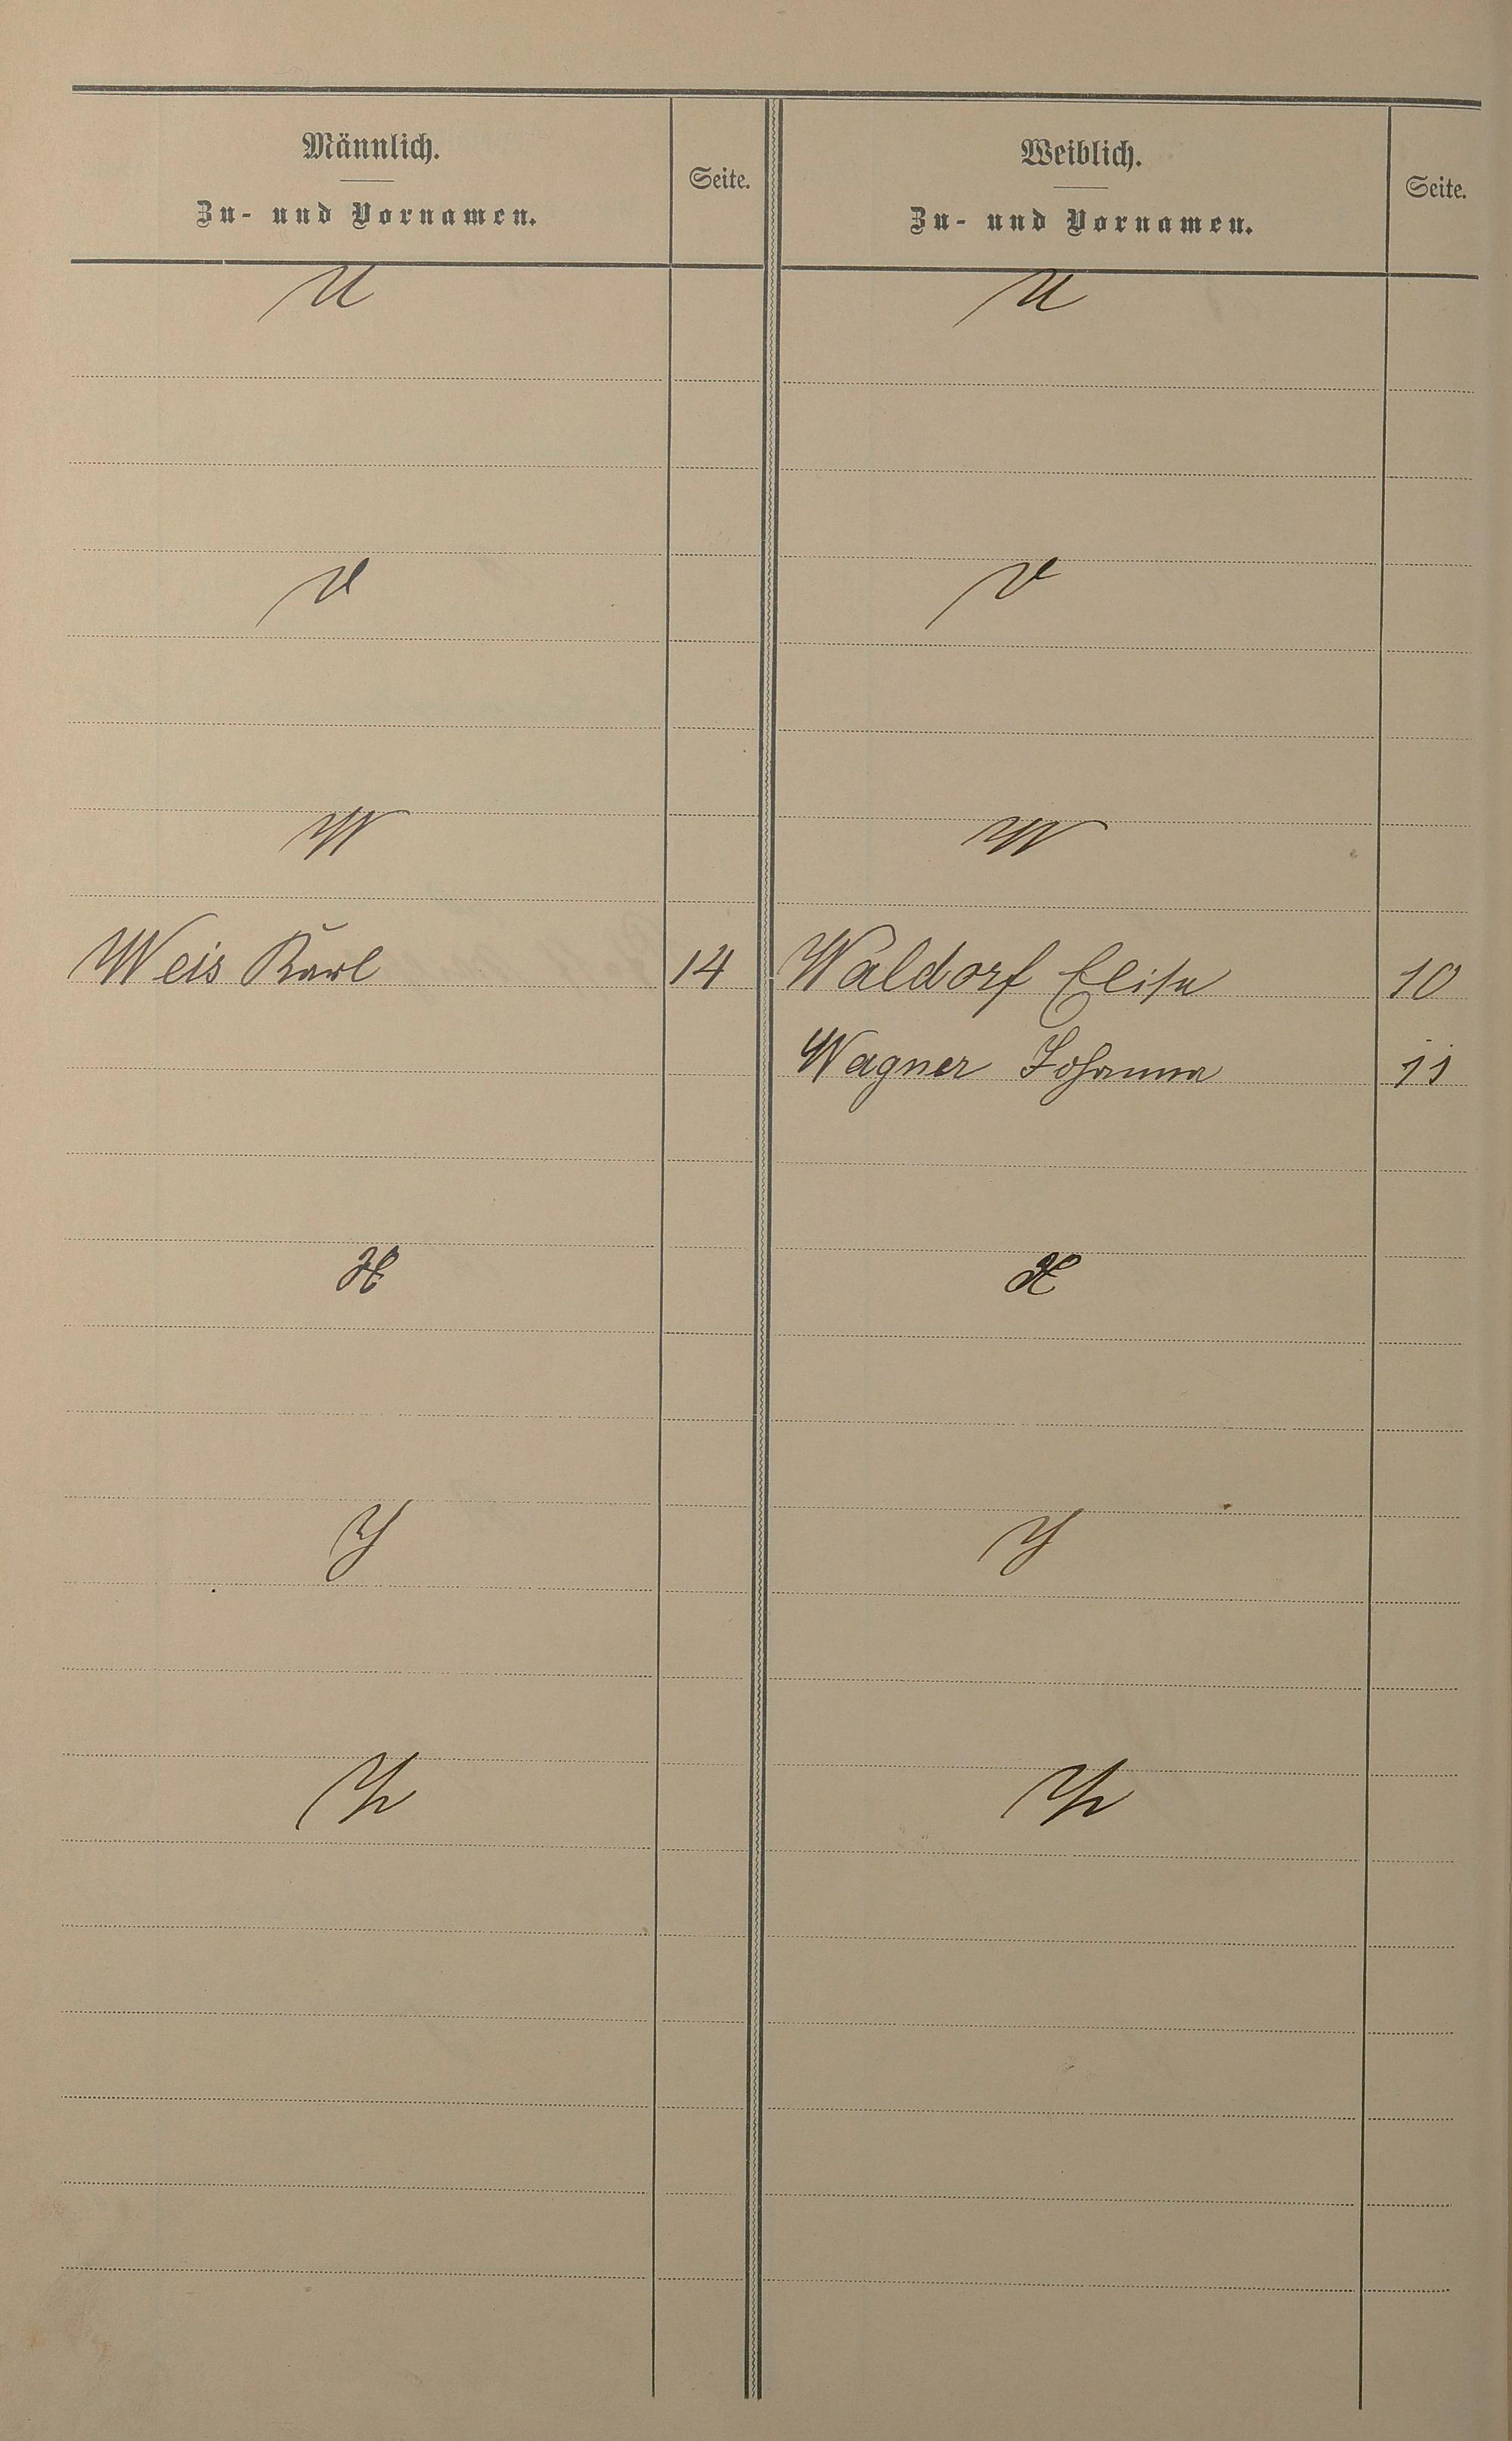 Männlich.
Zu- und Vornamen.
Seite.
Weiblich.
Zu- und Vornamen.
Seite.
U
U
V
V
W
W
Weis Karl 14
Waldorf Elisa 10
Wagner Johanna 11
X
X
Y
Y
Z
Z